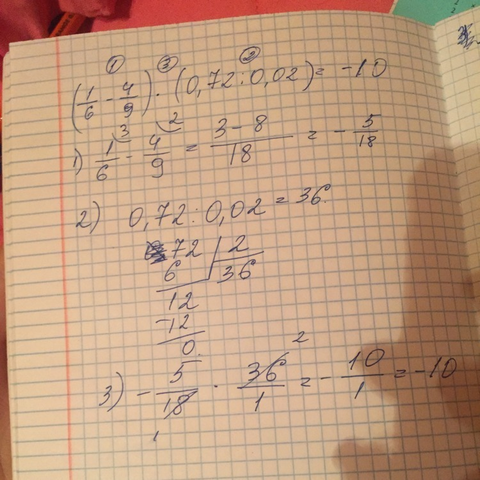 ① ③ ②
(1/6 - 4/9) · (0,72 : 0,02) = -10
1) 1/6 ³ - 4/9 ² = (3 - 8)/18 = - 5/18
2) 0,72 : 0,02 = 36
72 | 2
6 | 36
12
-12
0
3) - 5/18 · 36/1 = - 10/1 = -10
2
1